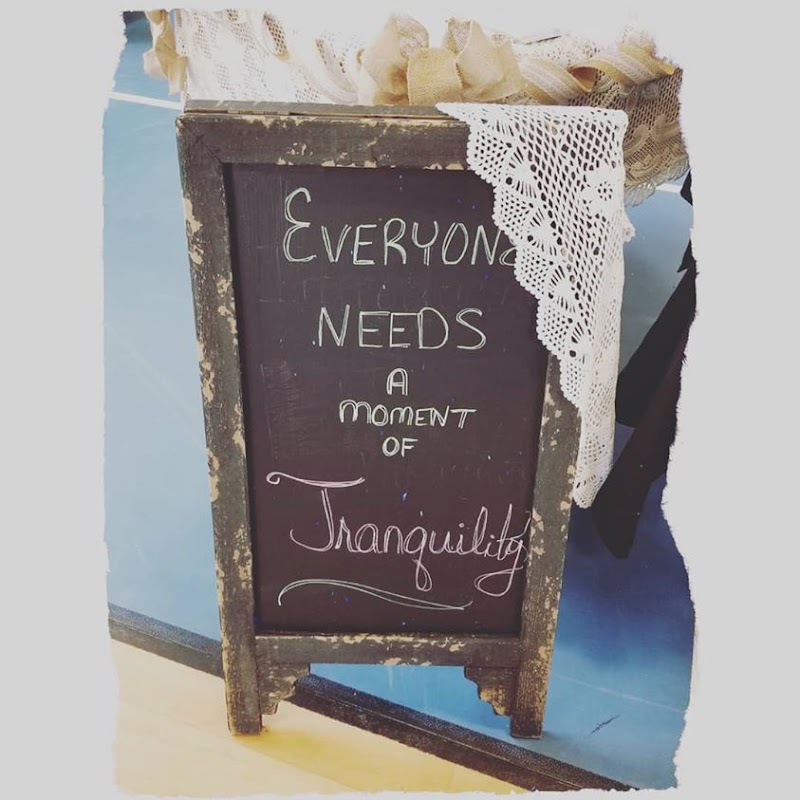 EVERYONE
NEEDS
A
MOMENT
OF
Tranquility